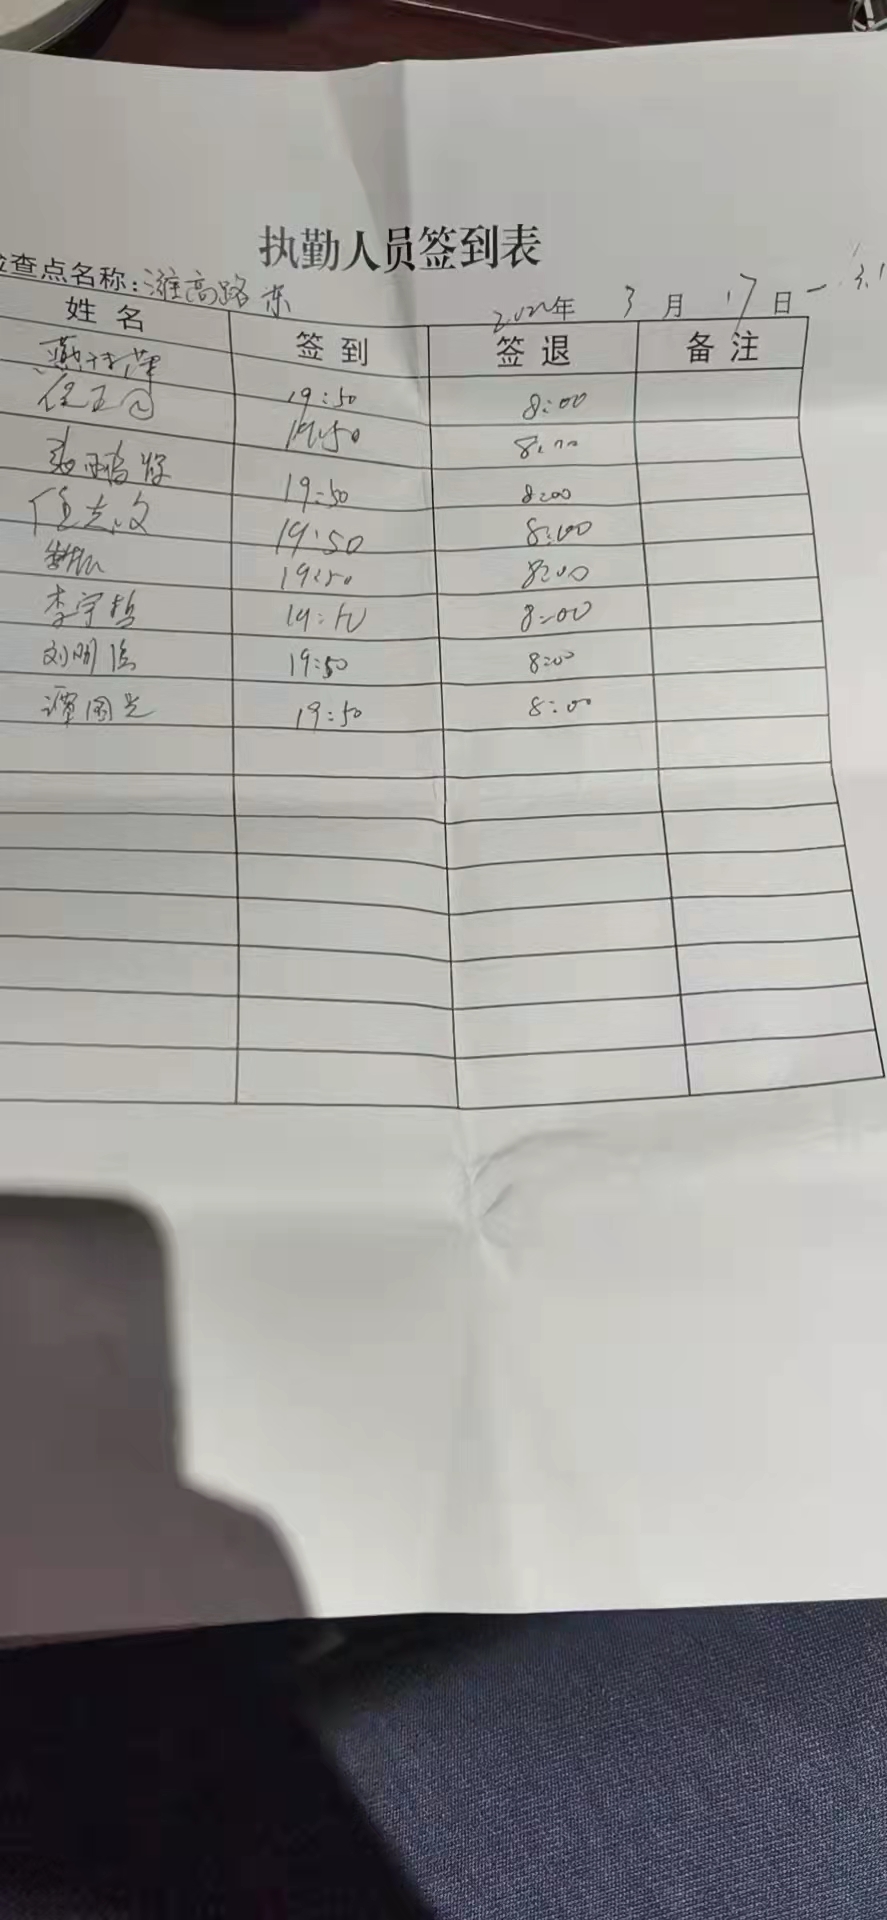 执勤人员签到表
检查点名称：潍高路东 2022年 3月 17日
姓名 签到 签退 备注
19:50 8:00
19:50 8:00
19:50 8:00
任志文 19:50 8:00
19:50 8:00
李宇哲 19:50 8:00
刘明信 19:50 8:00
谭国光 19:50 8:00